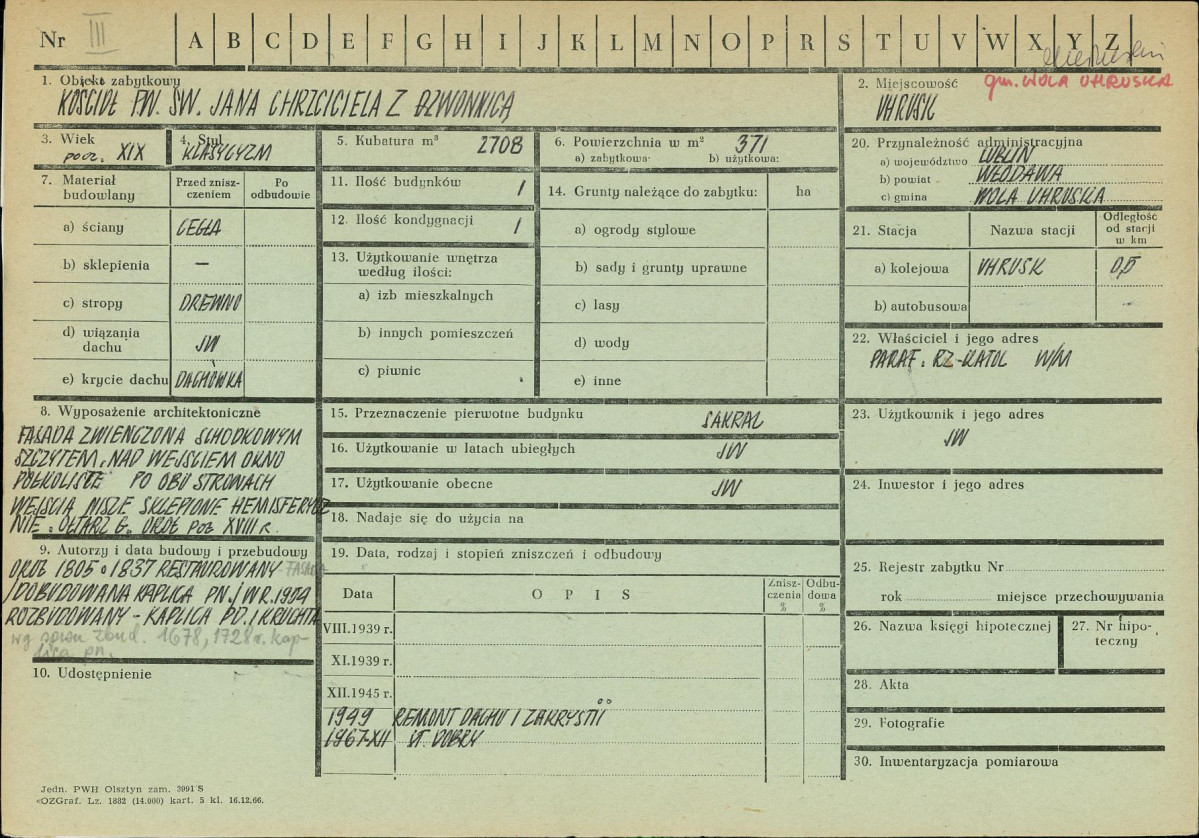 Nr III A B C D E F G H I J K L M N O P R S T U V W X Y Z
1. Obiekt zabytkowy
KOŚCIÓŁ P.W. ŚW. JANA CHRZCICIELA Z DZWONNICĄ
2. Miejscowość gm. WOLA UHRUSKA
UHRUSK
3. Wiek
pocz. XIX
4. Styl
KLASYCYZM
5. Kubatura m³ 2708
6. Powierzchnia w m² 371
a) zabytkowa: b) użytkowa:
7. Materiał budowlany
Przed zniszczeniem
Po odbudowie
a) ściany CEGŁA
b) sklepienia —
c) stropy DREWNO
d) wiązania dachu JW
e) krycie dachu DACHÓWKA
8. Wyposażenie architektoniczne
FASADA ZWIEŃCZONA SCHODKOWYM
SZCZYTEM, NAD WEJŚCIEM OKNO
PÓŁKOLISTE PO OBU STRONACH
WEJŚCIA NISZE SKLEPIONE HEMISFERYCZ
NIE. OŁTARZ G.
XVIII r.
9. Autorzy i data budowy i przebudowy
OKOŁ 1805 • 1837 RESTAUROWANY FASADA
/DOBUDOWANA KAPLICA PN./ W R. 1904
ROZBUDOWANY - KAPLICA PD. I KRUCHTA
wg zbud. 1678, 1728 r. kap-
lica pn.
10. Udostępnienie
11. Ilość budynków 1
12. Ilość kondygnacji 1
13. Użytkowanie wnętrza według ilości:
a) izb mieszkalnych
b) innych pomieszczeń
c) piwnic
14. Grunty należące do zabytku: ha
a) ogrody stylowe
b) sady i grunty uprawne
c) lasy
d) wody
e) inne
15. Przeznaczenie pierwotne budynku SAKRAL
16. Użytkowanie w latach ubiegłych JW
17. Użytkowanie obecne JW
18. Nadaje się do użycia na
19. Data, rodzaj i stopień zniszczeń i odbudowy
Data OPIS Zniszczenia % Odbudowa %
VIII.1939 r.
XI.1939 r.
XII.1945 r.
1949 REMONT DACHU I ZAKRYSTII
1967-XII ST. DOBRY
20. Przynależność administracyjna
a) województwo LUBLIN
b) powiat WŁODAWA
c) gmina WOLA UHRUSKA
21. Stacja Nazwa stacji Odległość od stacji w km
a) kolejowa UHRUSK 0,5
b) autobusowa
22. Właściciel i jego adres
PARAF. RZ-KATOL W/M
23. Użytkownik i jego adres
JW
24. Inwestor i jego adres
25. Rejestr zabytku Nr
rok miejsce przechowywania
26. Nazwa księgi hipotecznej
27. Nr hipoteczny
28. Akta
29. Fotografie
30. Inwentaryzacja pomiarowa
Jedn. PWH Olsztyn zam. 3991 S
«OZGraf. Lz. 1882 (14.000) kart. 5 kl. 16.12.66.